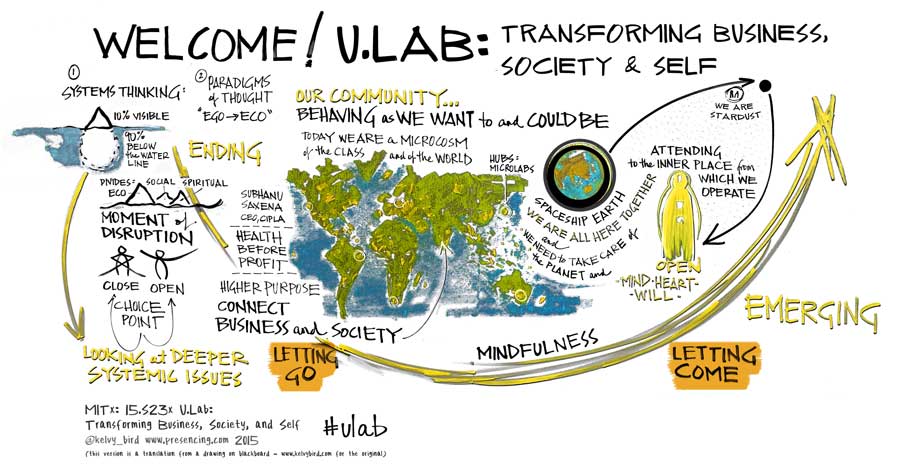 WELCOME! U.LAB:
TRANSFORMING BUSINESS,
SOCIETY & SELF
1
SYSTEMS THINKING:
10% VISIBLE
90%
BELOW
THE WATER
LINE
2
PARADIGMS
of THOUGHT
"EGO→ECO"
ENDING
DIVIDES:
ECO
SOCIAL
SPIRITUAL
MOMENT of
DISRUPTION
CLOSE
OPEN
CHOICE
POINT
LOOKING at DEEPER
SYSTEMIC ISSUES
SUBHANU
SAXENA
CEO, CIPLA
HEALTH
BEFORE
PROFIT
HIGHER PURPOSE
CONNECT
BUSINESS and SOCIETY
OUR COMMUNITY...
BEHAVING as WE WANT to and COULD BE
TODAY WE ARE a MICROCOSM
of the CLASS and of the WORLD
HUBS:
MICROLABS
SPACESHIP EARTH
WE ARE ALL HERE TOGETHER
and
WE NEED to TAKE CARE of
the PLANET and
WE ARE
STARDUST
ATTENDING
to the INNER PLACE from
WHICH WE
OPERATE
OPEN
-MIND-HEART-
WILL-
EMERGING
LETTING
GO
MINDFULNESS
LETTING
COME
MITx: 15.S23x U.Lab:
Transforming Business, Society, and Self
@kelvy_bird www.presencing.com 2015
(this version is a translation from a drawing on blackboard - www.kelvybird.com for the original)
#ulab